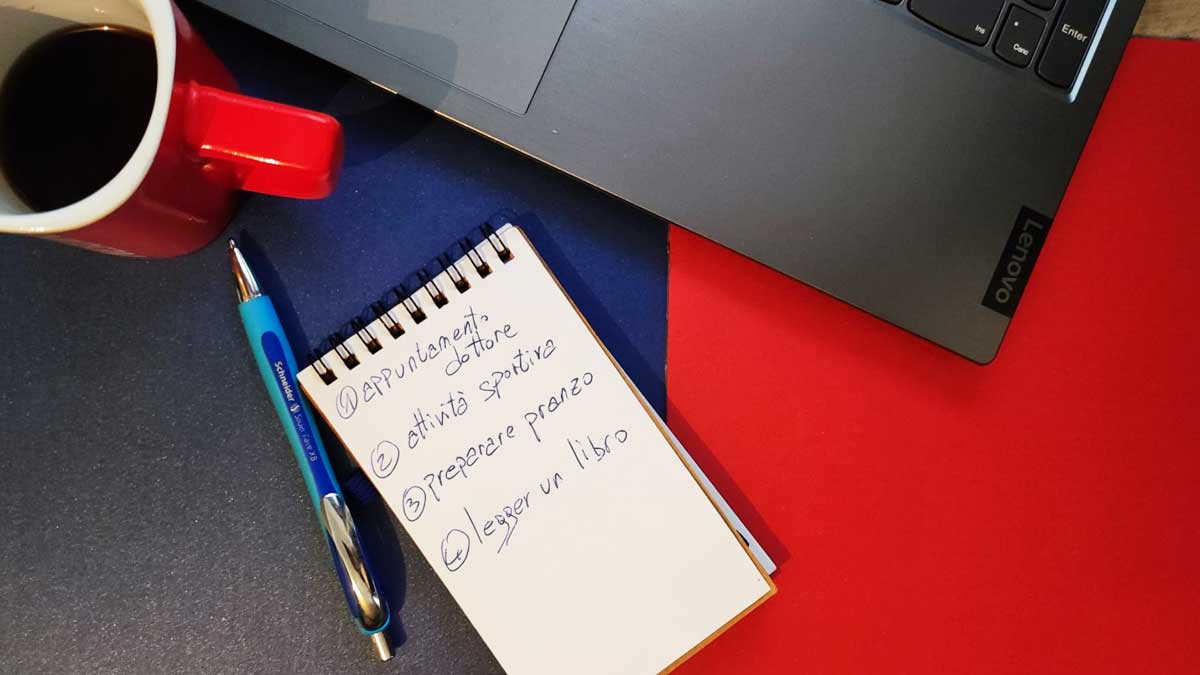 Ins
Canc
Enter
Lenovo
Schneider Slider Rave XB
① appuntament.
dottore
② attività sportiva
③ preparare pranzo
④ legger un libro